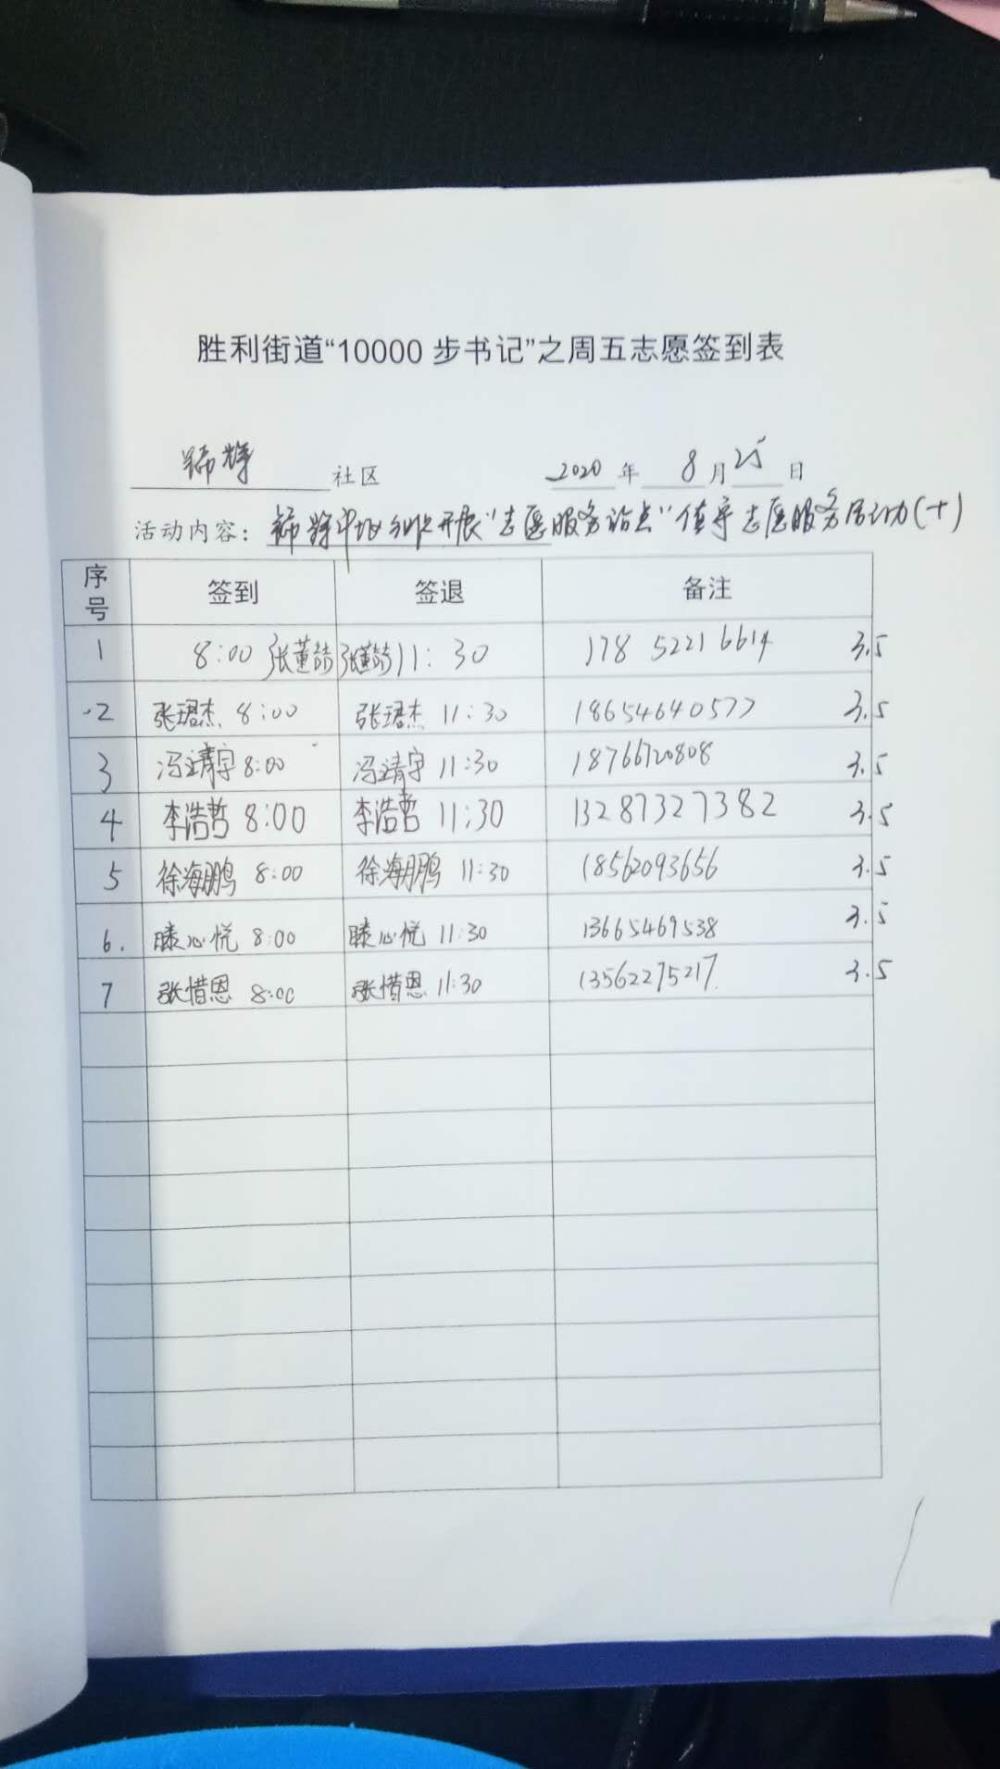 胜利街道“10000步书记”之周五志愿签到表
锦辉 社区 2020年 8月25日
活动内容： 锦辉社区开展“志愿服务站点”值守志愿服务活动(十)
序号 签到 签退 备注
1 8:00 张董皓 张董皓 11:30 178 5221 6614 3.5
2 张珺杰 8:00 张珺杰 11:30 18654640577 3.5
3 冯靖宇 8:00 冯靖宇 11:30 18766720808 3.5
4 李浩哲 8:00 李浩哲 11:30 13287327382 3.5
5 徐海鹏 8:00 徐海鹏 11:30 18562093656 3.5
6. 滕心悦 8:00 滕心悦 11:30 13665469538 3.5
7 张惜恩 8:00 张惜恩 11:30 13562275217. 3.5